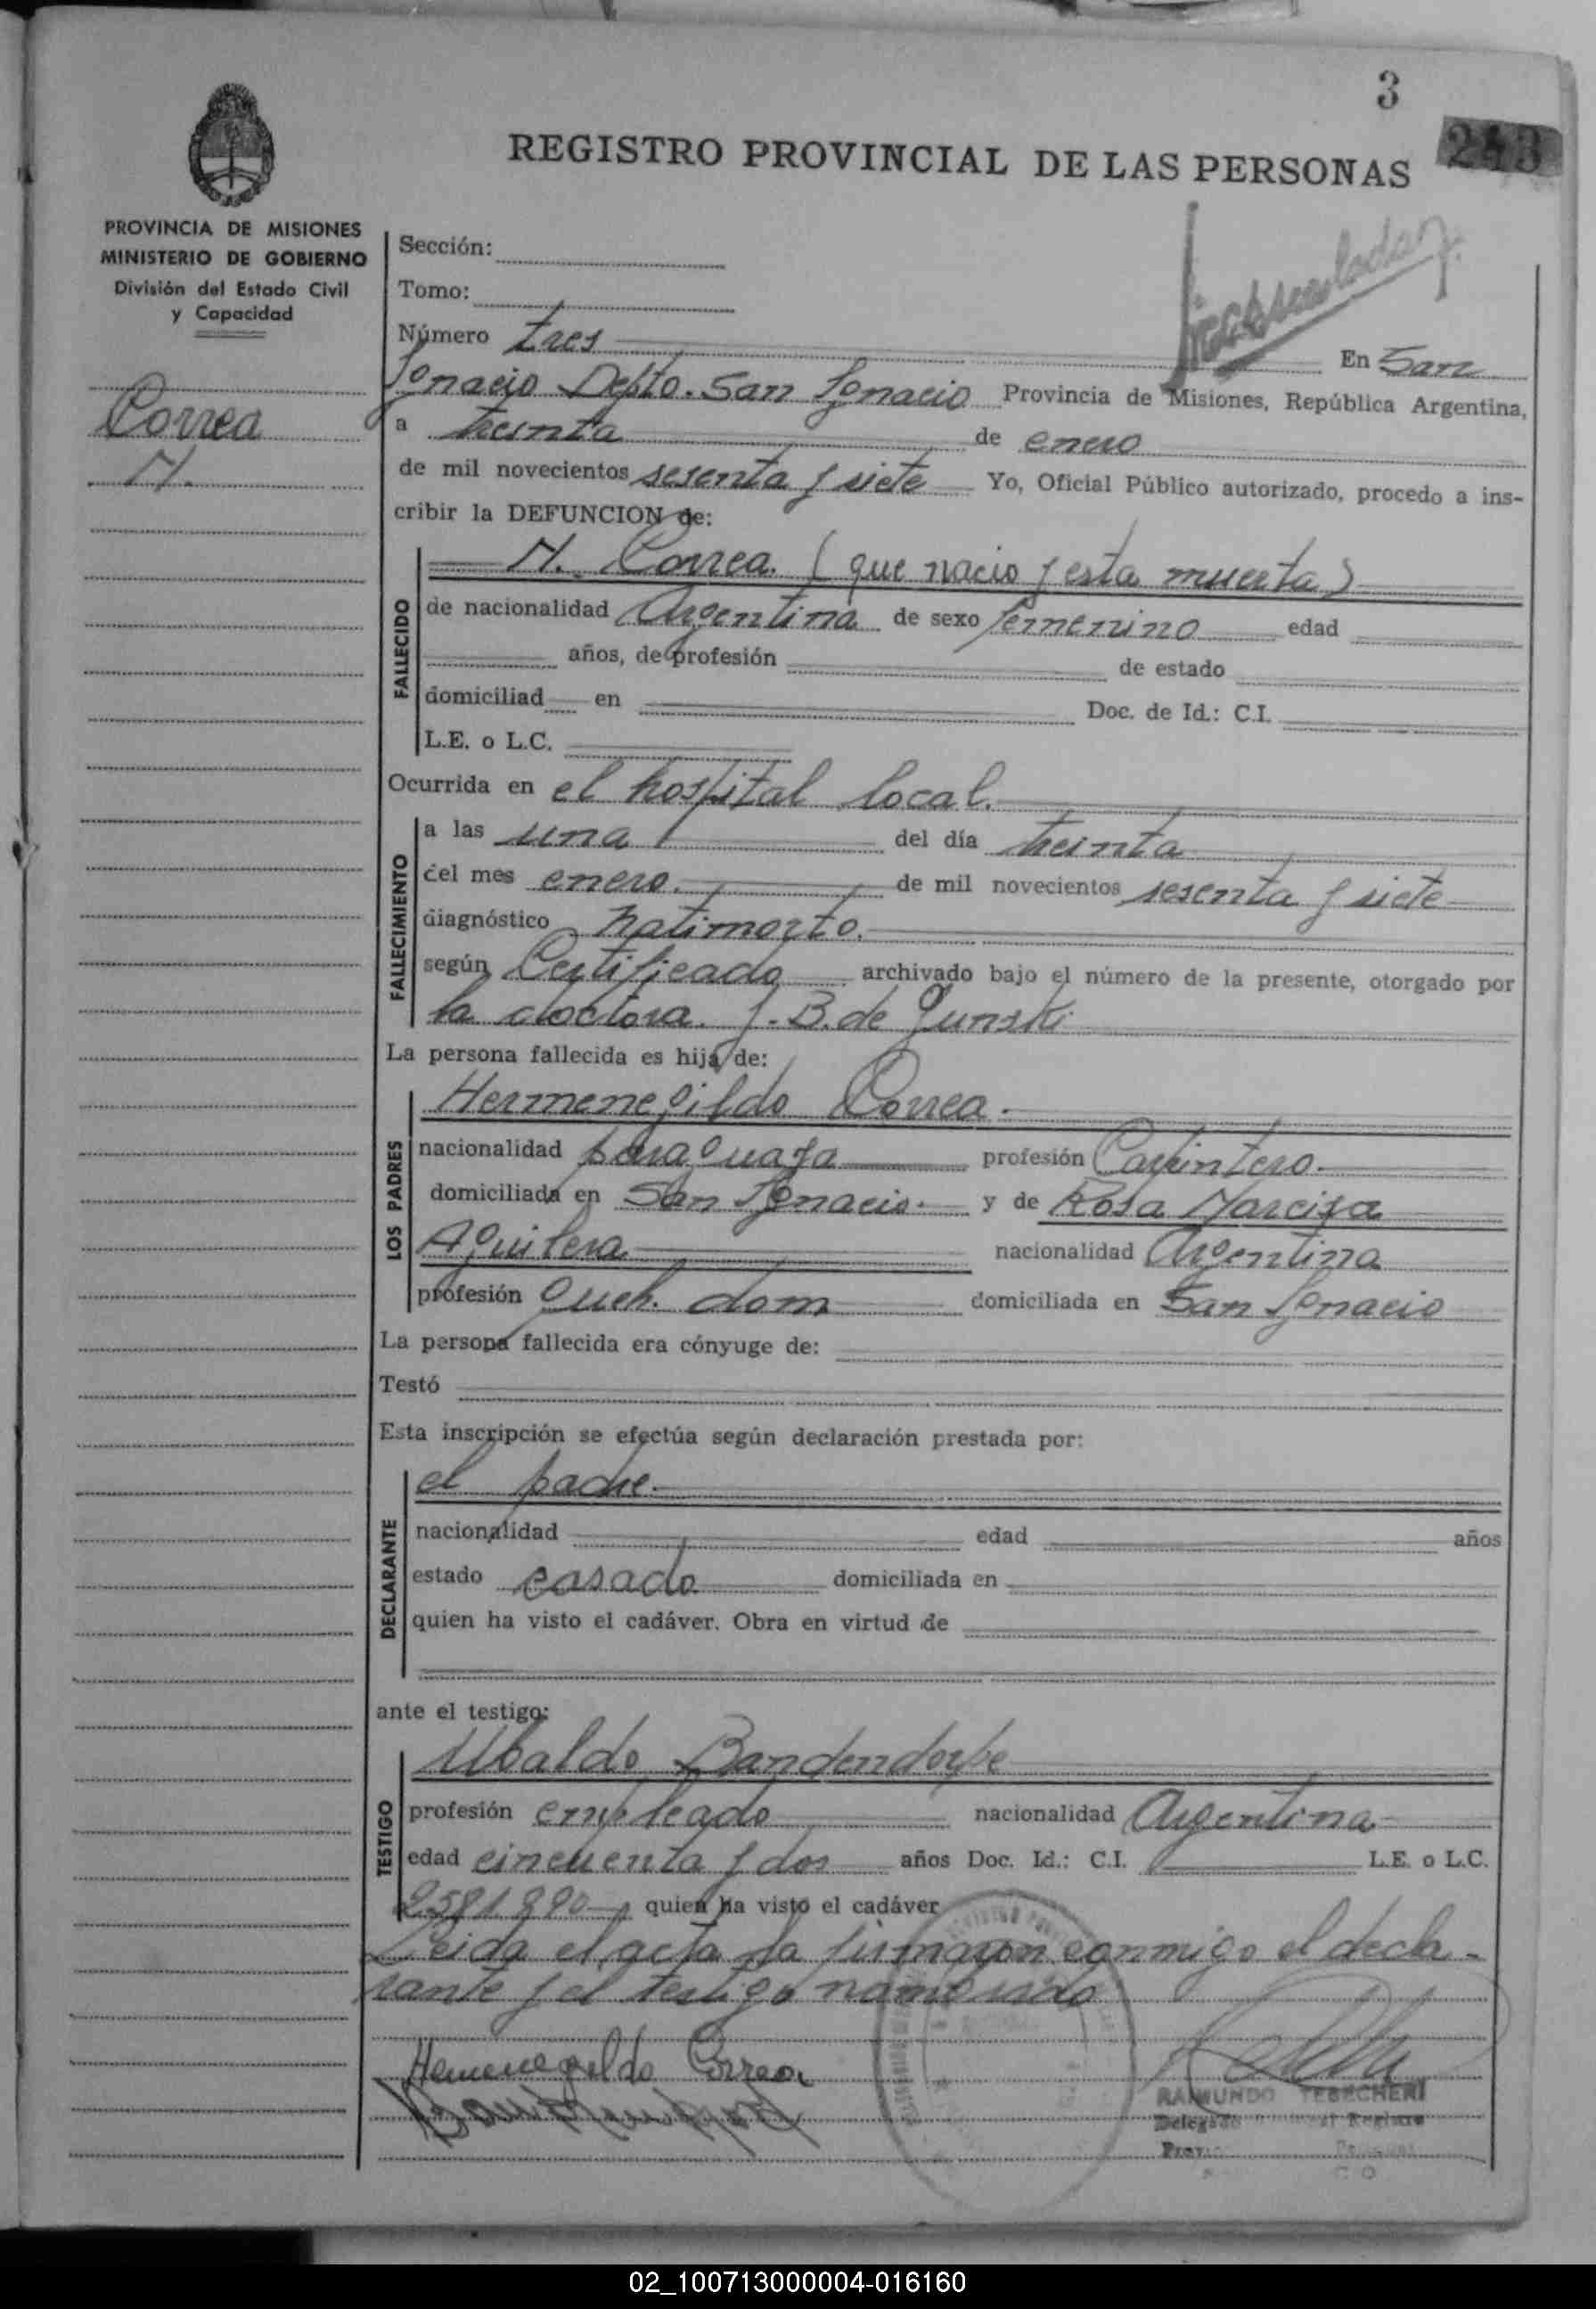 3
243
REGISTRO PROVINCIAL DE LAS PERSONAS
PROVINCIA DE MISIONES
MINISTERIO DE GOBIERNO
División del Estado Civil
y Capacidad
Correa
N.
Sección:
Tomo:
Número tres En San
Ignacio Depto. San Ignacio Provincia de Misiones, República Argentina,
a treinta de enero
de mil novecientos sesenta y siete Yo, Oficial Público autorizado, procedo a ins-
cribir la DEFUNCION de:
FALLECIDO
N. Correa. (que nacio y esta muerta)
de nacionalidad Argentina de sexo femenino edad
años, de profesión de estado
domiciliad en Doc. de Id.: C.I.
L.E. o L.C.
Ocurrida en el hospital local.
FALLECIMIENTO
a las una del día treinta
del mes enero. de mil novecientos sesenta y siete
diagnóstico natimorto.
según Certificado archivado bajo el número de la presente, otorgado por
la doctora. J. B. de
La persona fallecida es hija de:
LOS PADRES
Hermenegildo Correa.
nacionalidad paraguaya profesión Carpintero.
domiciliada en San Ignacio. y de Rosa Narcisa
Aguilera nacionalidad Argentina
profesión queh. dom domiciliada en San Ignacio
La persona fallecida era cónyuge de:
Testó
Esta inscripción se efectúa según declaración prestada por:
DECLARANTE
el padre.
nacionalidad edad años
estado casado domiciliada en
quien ha visto el cadáver. Obra en virtud de
ante el testigo:
TESTIGO
Ubaldo Bandendorpe
profesión empleado nacionalidad Argentina
edad cincuenta y dos años Doc. Id.: C.I. L.E. o L.C.
quien ha visto el cadáver
Leida el acta la firmaron conmigo el decla-
rante y el testigo nombrado
Hemenegildo Correa
RAIMUNDO TEBECHERI
Delegado
02_100713000004-016160